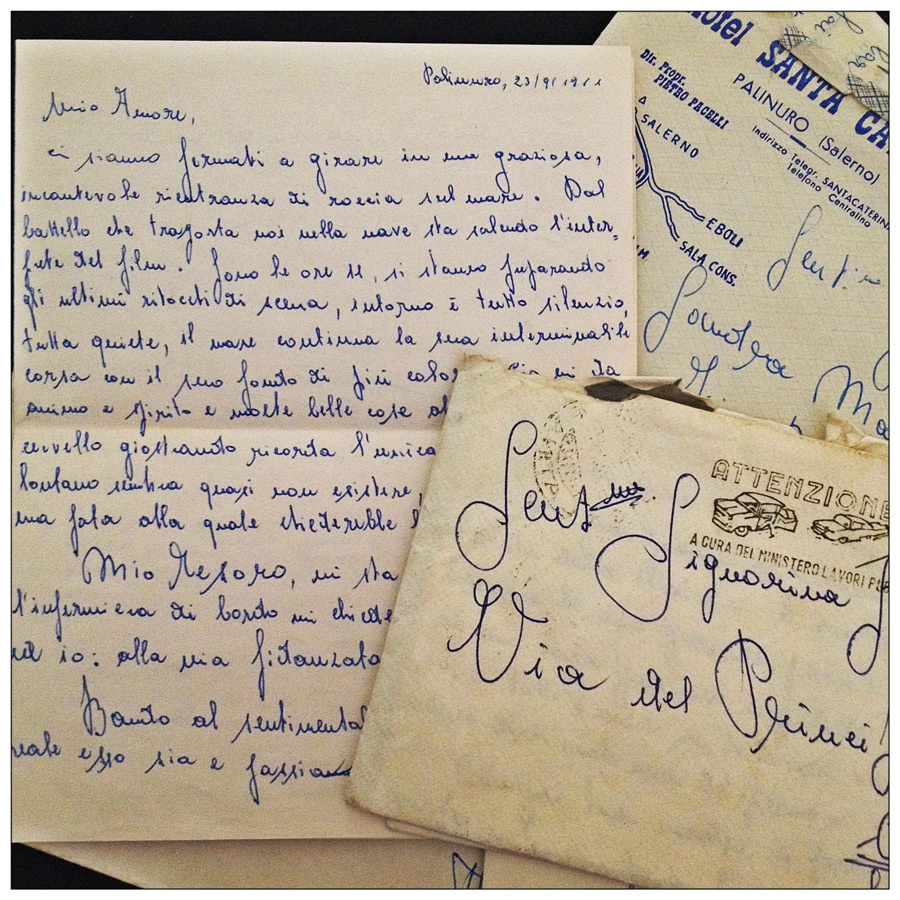 Palinuro, 23/9/1911
Mio Amore,
ci siamo fermati a girare in una graziosa,
incantevole rientranza di roccia sul mare. Dal
battello che trasporta noi nella nave sta salendo l'inter=
prete del film. Sono le ore 11, si stanno preparando
gli ultimi ritocchi di scena, intorno è tutto silenzio,
tutta quiete, il mare continua la sua interminabile
corsa con il suo
animo e spirito e molte belle cose al
cervello giostrando
lontano sembra quasi non esistere,
una fata alla quale chiederebbe
Mio Tesoro, mi sta
l'infermiera di bordo mi chiede
ed io: alla mia fidanzata
Bando al sentimental
reale esso sia e
Hotel SANTA CA
Dir. Propr.
PIETRO PAGELLI
PALINURO (Salerno)
Indirizzo Telegr. SANTACATERINA
Telefono Centralino
A SALERNO
EBOLI
SALA CONS.
Sandra Ma
ATTENZIONE
A CURA DEL MINISTERO LAVORI PUB
Gent.ma
Signorina
Via del Princi